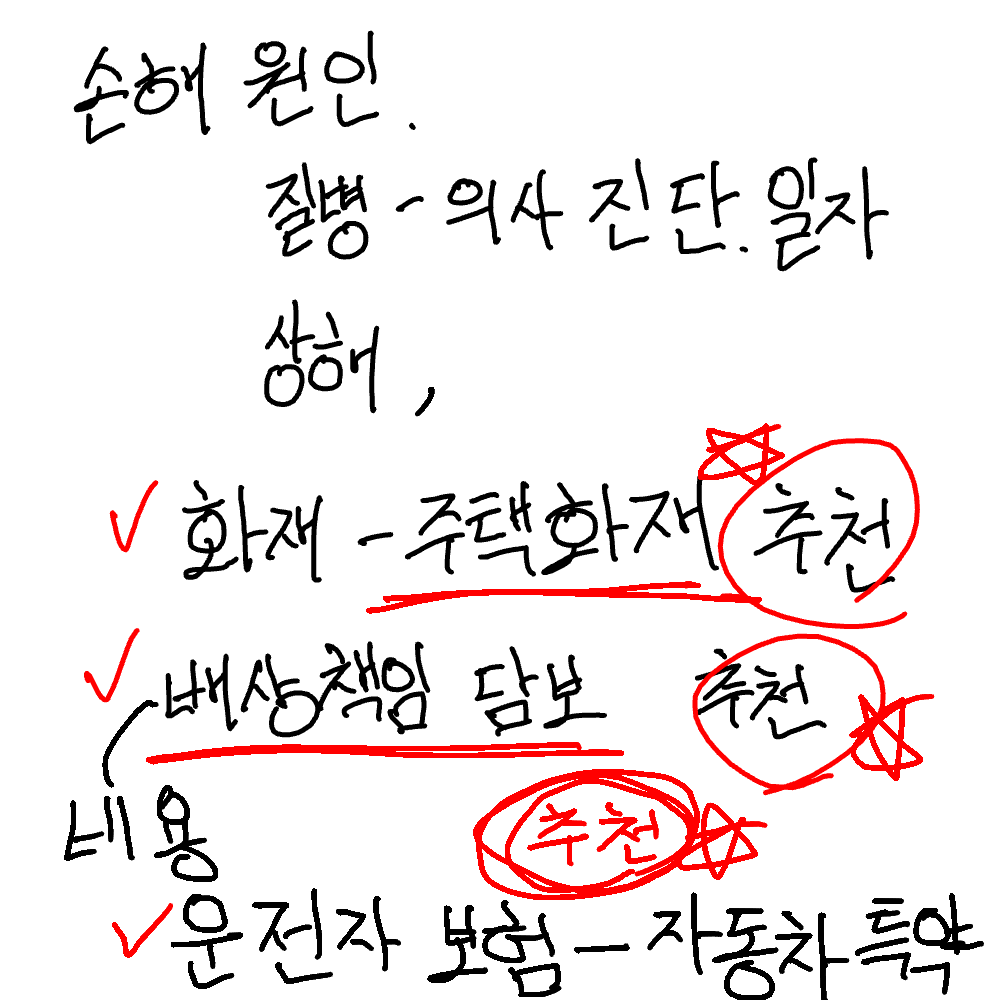 손해 원인.
질병 - 의사 진단. 일자
상해,
화재 - 주택화재 추천
배상책임 담보 추천
비용 추천
운전자 보험 - 자동차 특약